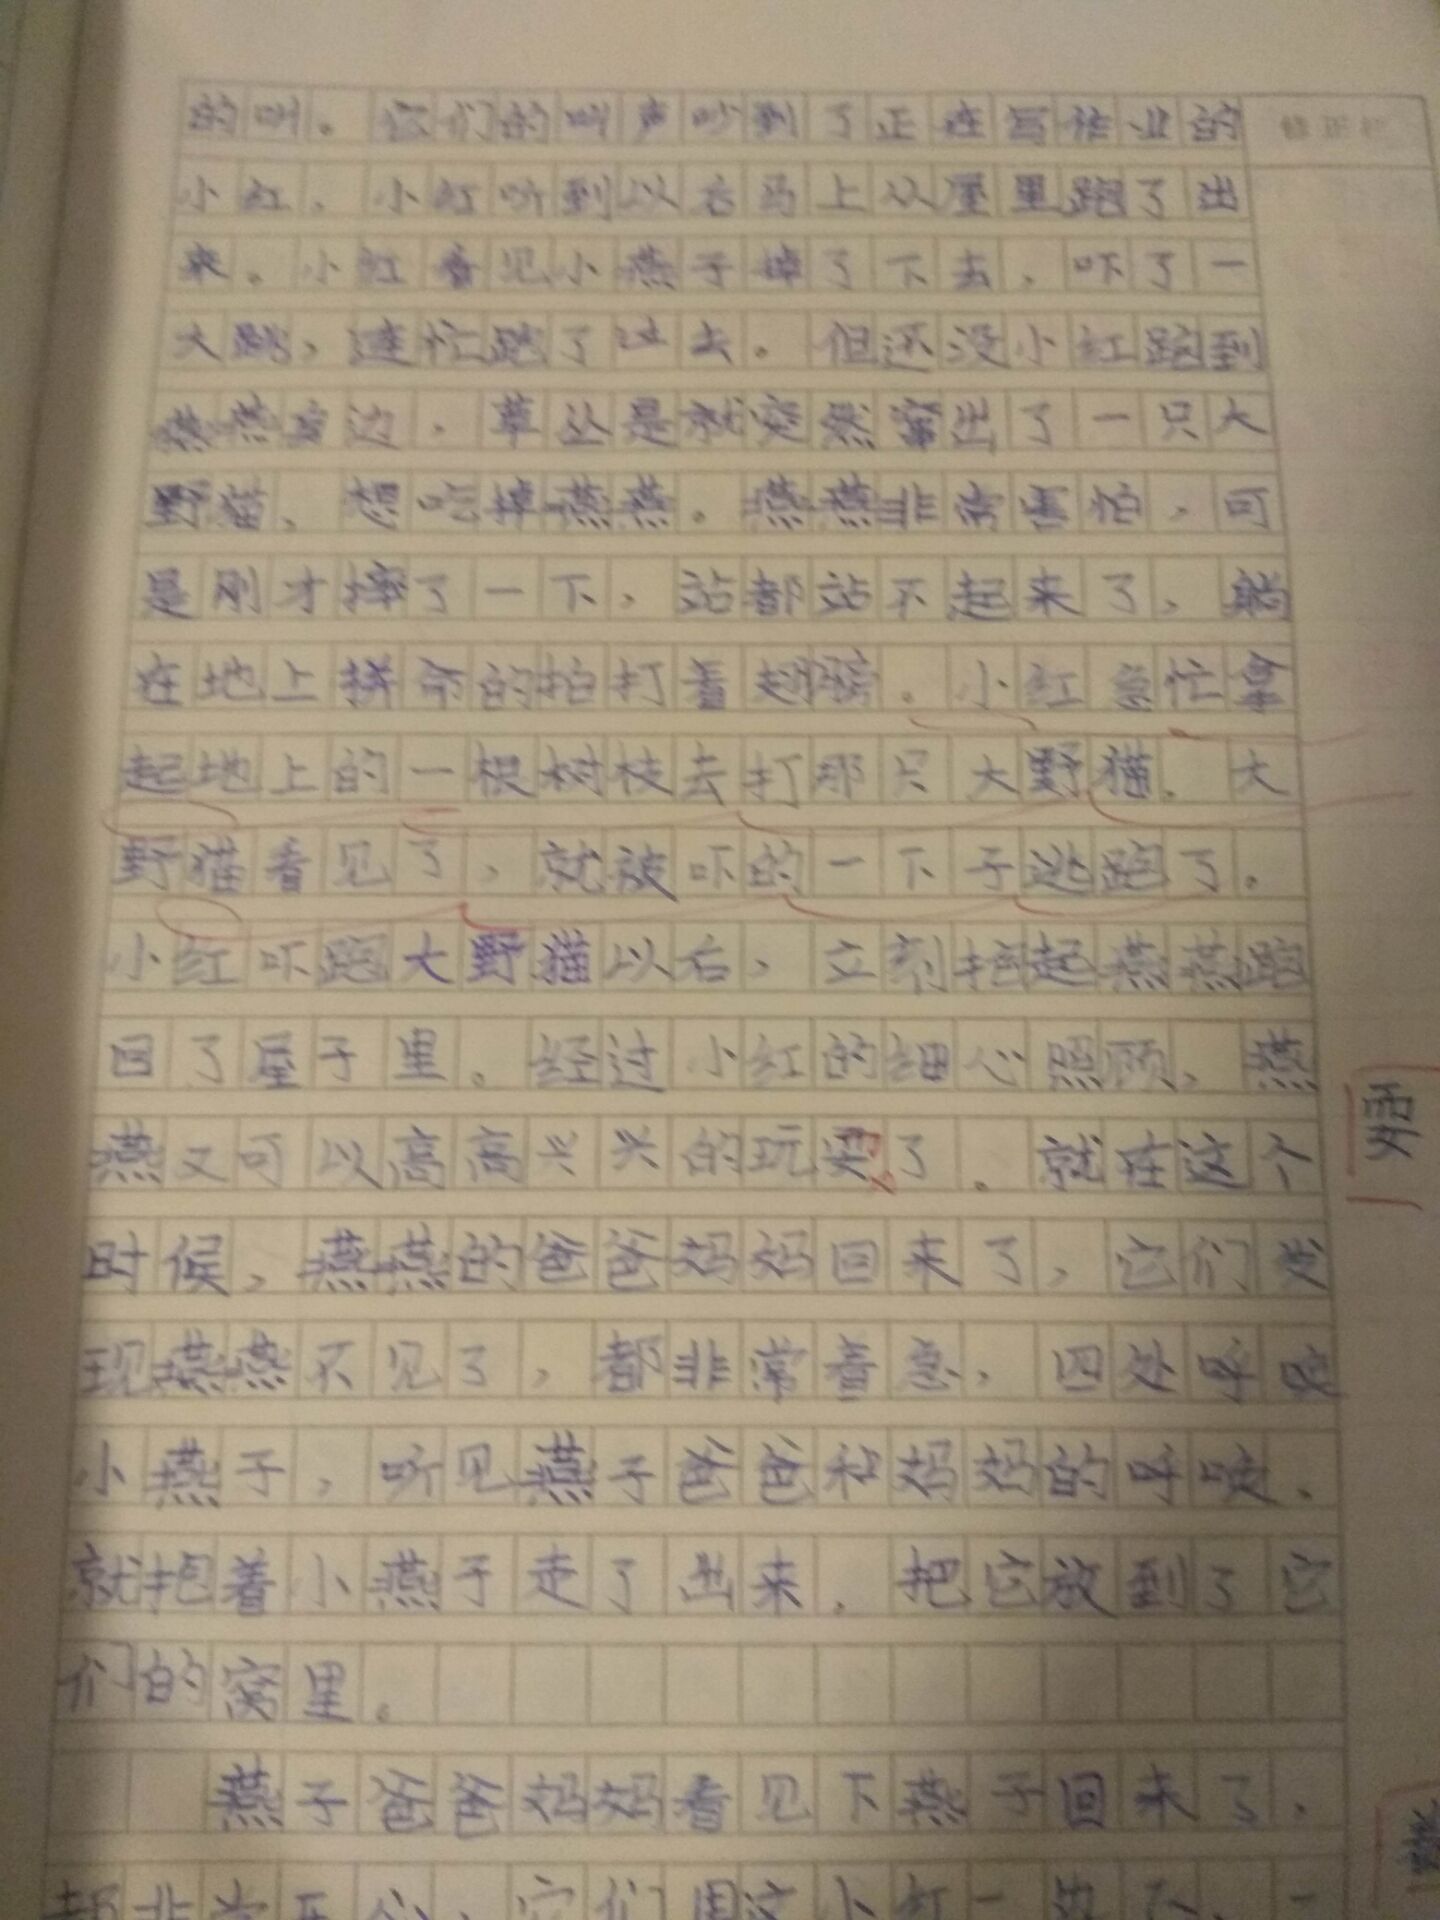 的叫。它们的叫声吵到了正在写作业的
修正栏
小红，小红听到以后马上从屋里跑了出
来。小红看见小燕子掉了下去，吓了一
大跳，连忙跑了过去。但还没小红跑到
燕燕旁边，草丛是就突然窜出了一只大
野猫，想吃掉燕燕。燕燕非常害怕，可
是刚才摔了一下，站都站不起来了，躺
在地上拼命的拍打着翅膀。小红急忙拿
起地上的一根树枝去打那只大野猫。大
野猫看见了，就被吓的一下子逃跑了。
小红吓跑大野猫以后，立刻抱起燕燕跑
回了屋子里。经过小红的细心照顾，燕
燕又可以高高兴兴的玩耍了。就在这个
耍
时候，燕燕的爸爸妈妈回来了，它们发
现燕燕不见了，都非常着急，四处呼唤
小燕子，听见燕子爸爸和妈妈的呼唤，
就抱着小燕子走了出来，把它放到了它
们的窝里。
燕子爸爸妈妈看见下燕子回来了，
都非常开心，它们围这小红一